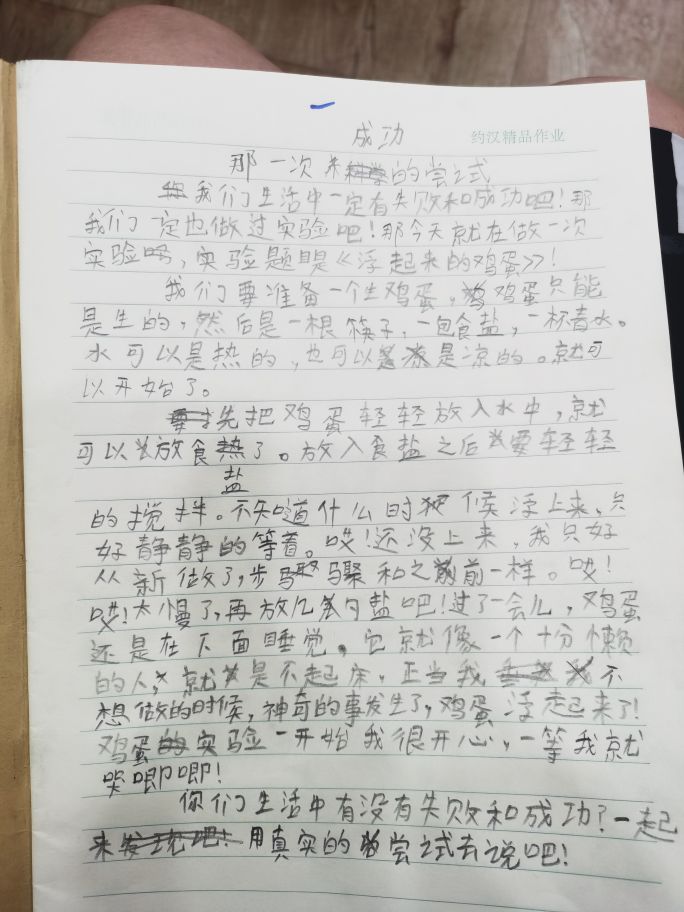 约汉精品作业
成功
那一次来的尝试
我们生活中一定有失败和成功吧！那
我们一定也做过实验吧！那今天就在做一次
实验呀，实验题是《浮起来的鸡蛋》！
我们要准备一个生鸡蛋，鸡蛋只能
是生的，然后是一根筷子，一包食盐，一杯青水。
水可以是热的，也可以是凉的。就可
以开始了。
先把鸡蛋轻轻放入水中，就
可以放食了。放入食盐之后要轻轻
盐
的搅拌。不知道什么时候浮上来，只
好静静的等着。哎！还没上来，我只好
从新做了，步骤和之前一样。哎！
哎！太慢了，再放几勺盐吧！过了一会儿，鸡蛋
还是在下面睡觉。它就像一个十分懒
的人，就是不起床。正当我不
想做的时候，神奇的事发生了，鸡蛋浮起来了！
鸡蛋实验一开始我很开心，一等我就
哭唧唧！
你们生活中有没有失败和成功？一起
来用真实的尝试去说吧！